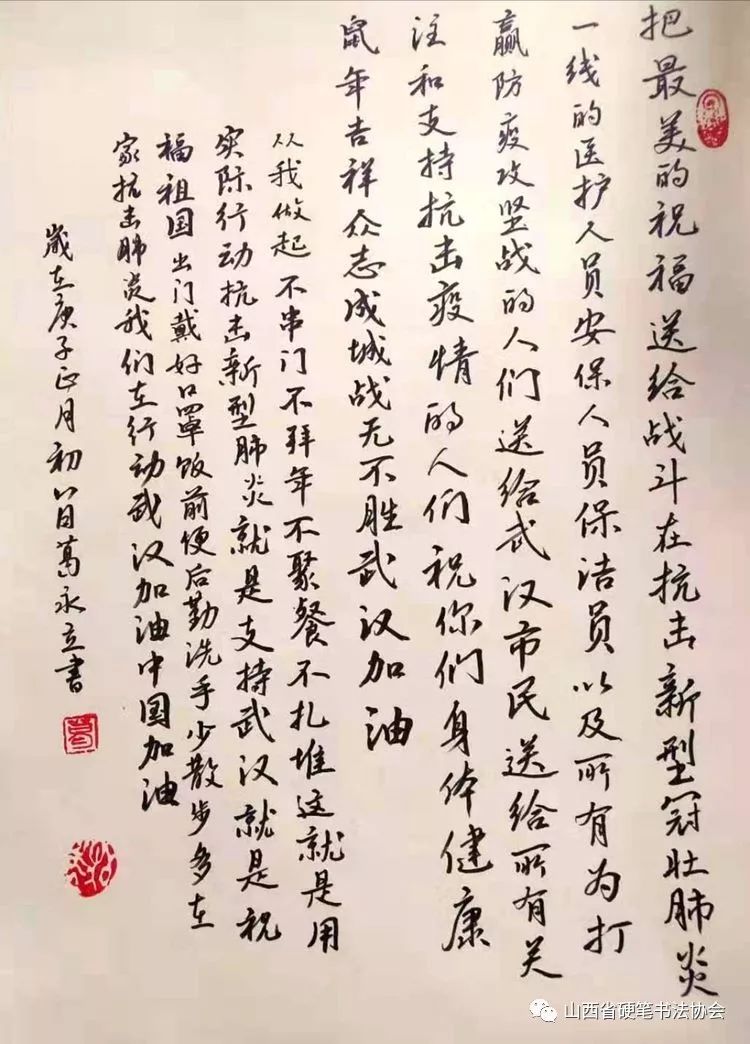 把最美的祝福送给战斗在抗击新型冠壮肺炎
一线的医护人员安保人员保洁员以及所有为打
赢防疫攻坚战的人们送给武汉市民送给所有关
注和支持抗击疫情的人们祝你们身体健康
鼠年吉祥众志成城战无不胜武汉加油
从我做起不串门不拜年不聚餐不扎堆这就是用
实际行动抗击新型肺炎就是支持武汉就是祝
福祖国出门戴好口罩饭前便后勤洗手少散步多在
家抗击肺炎我们在行动武汉加油中国加油
岁在庚子正月初八日葛永立书
山西省硬笔书法协会